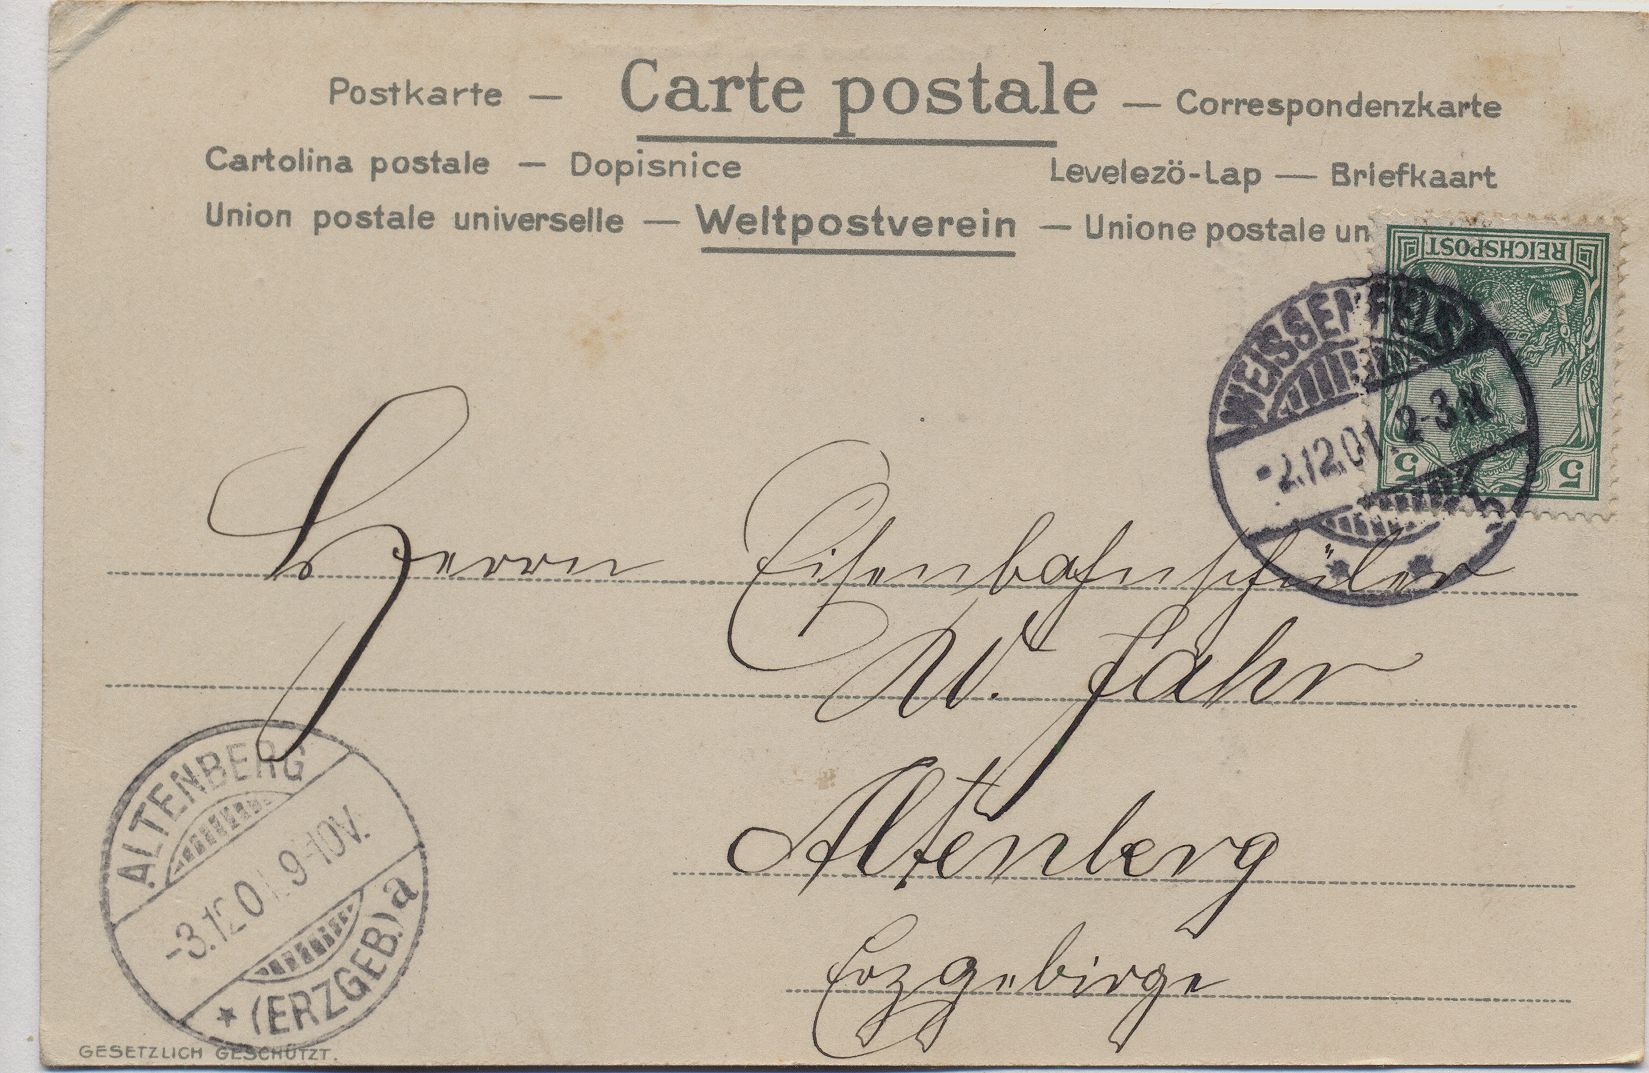 Postkarte — Carte postale — Correspondenzkarte
Cartolina postale — Dopisnice Levelezö-Lap — Briefkaart
Union postale universelle — Weltpostverein — Unione postale un
REICHSPOST
5 5
WEISSENFELS
-2.12.01. 2-3 N
Herrn Eisenbahnschüler
W. Fahr
Altenberg
Erzgebirge
ALTENBERG
-3.12.01. 9-10V.
* (ERZGEB.) a
GESETZLICH GESCHÜTZT.